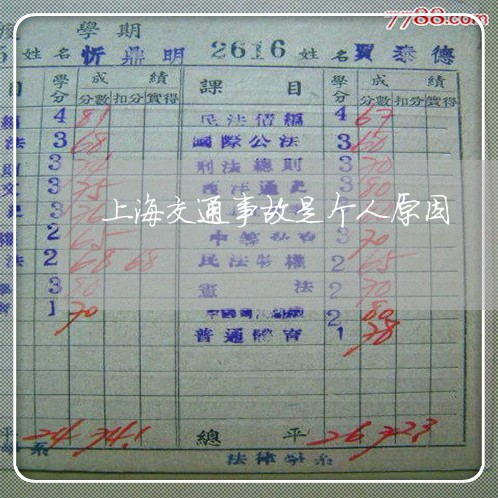 7788.com
學期
姓名 忻鼎明 2616 姓名 賈泰德
目 學分 成績 課目 學分 成績
分數 扣分 實得 分數 扣分 實得
4 81 民法債編 4 67
法 3 68 國際公法 3 60
3 刑法總則 3 70
3 75 法通史 3 80
上海交通事故是个人原因
2 65 3 70
法 2 68 68 民法物權 2 65
3 80 憲法 2 70
1 70 2 80
普通體育 1 78
平 24 74.1 總平 26 72.3
系 法律學系